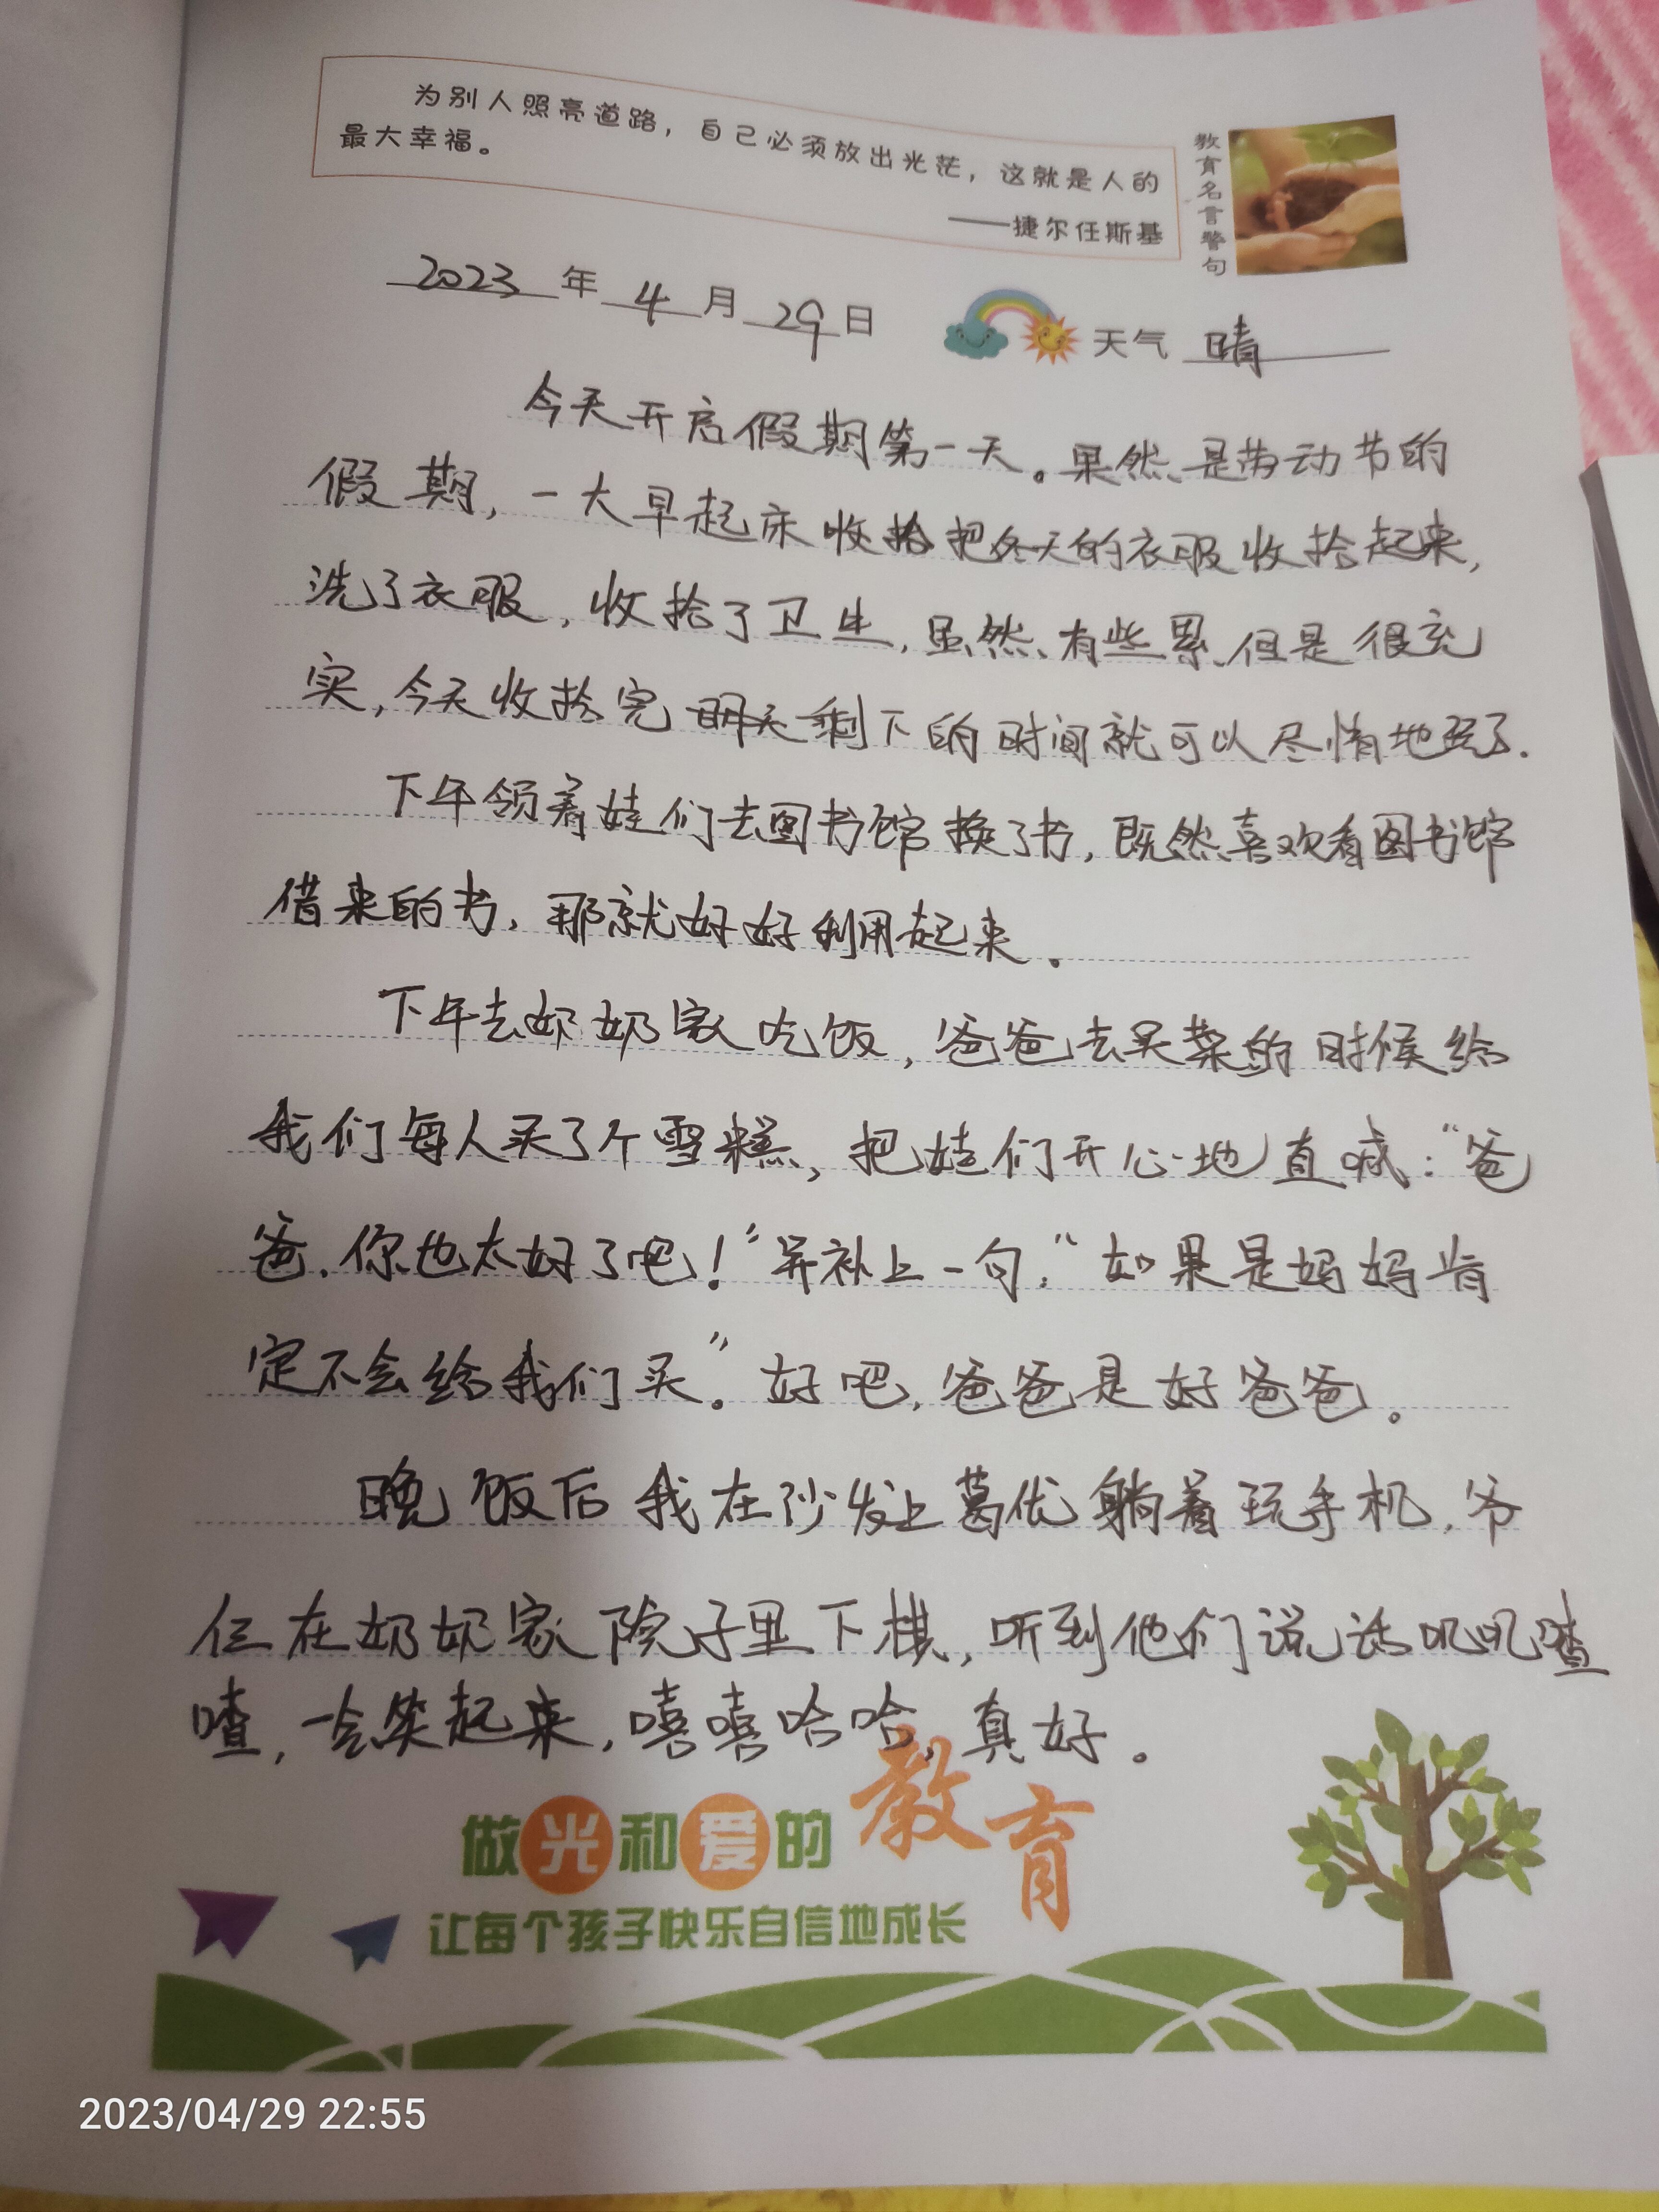 为别人照亮道路，自己必须放出光茫，这就是人的
最大幸福。
——捷尔任斯基
教育名言警句
2023年4月29日 天气 晴
今天开启假期第一天。果然是劳动节的
假期，一大早起床收拾把冬天的衣服收拾起来，
洗了衣服，收拾了卫生，虽然有些累，但是很充
实，今天收拾完明天剩下的时间就可以尽情地玩了.
下午领着娃们去图书馆换了书，既然喜欢看图书馆
借来的书，那就好好利用起来。
下午去奶奶家吃饭，爸爸去买菜的时候给
我们每人买了个雪糕，把娃们开心地直喊：“爸
爸，你也太好了吧！”并补上一句：“如果是妈妈肯
定不会给我们买。”好吧，爸爸是好爸爸。
晚饭后我在沙发上葛优躺着玩手机，爷
仨在奶奶家院子里下棋，听到他们说话叽叽喳
喳，一会笑起来，嘻嘻哈哈，真好。
做光和爱的教育
让每个孩子快乐自信地成长
2023/04/29 22:55